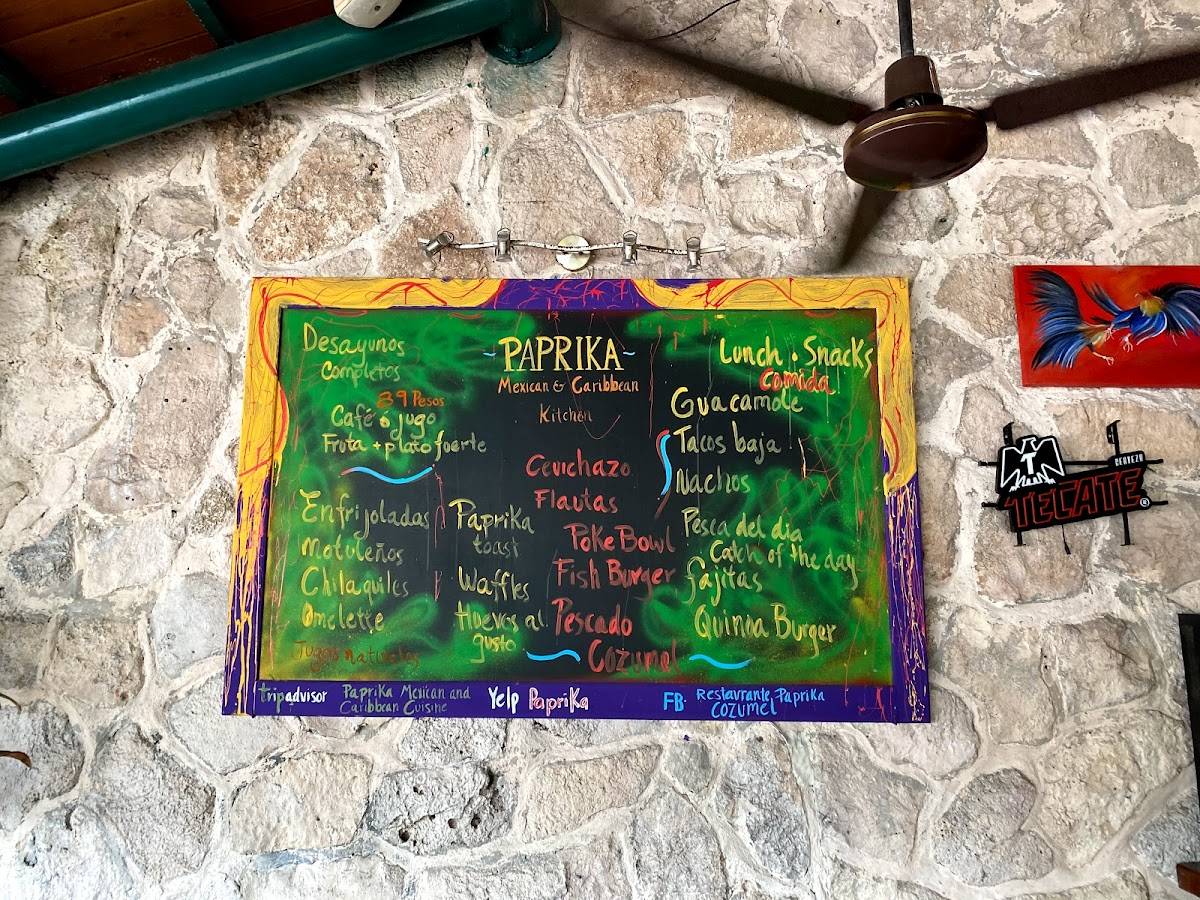 Desayunos
completos
39 Pesos
Café ó jugo
Fruta + plato fuerte
Enfrijoladas
motuleños
Chilaquiles
Omelette
Jugos naturales
Paprika
toast
Waffles
Huevos al
gusto
-PAPRIKA-
Mexican & Caribbean
Kitchen
Cevichazo
Flautas
Poke Bowl
Fish Burger
Pescado
Cozumel
Lunch . Snacks
Comida
Guacamole
Tacos baja
Nachos
Pesca del dia
Catch of the day
fajitas
Quinoa Burger
tripadvisor
Paprika Mexican and
Caribbean Cuisine
Yelp Paprika
FB
Restaurante Paprika
COZUMEL
T
CERVEZA
TECATE®